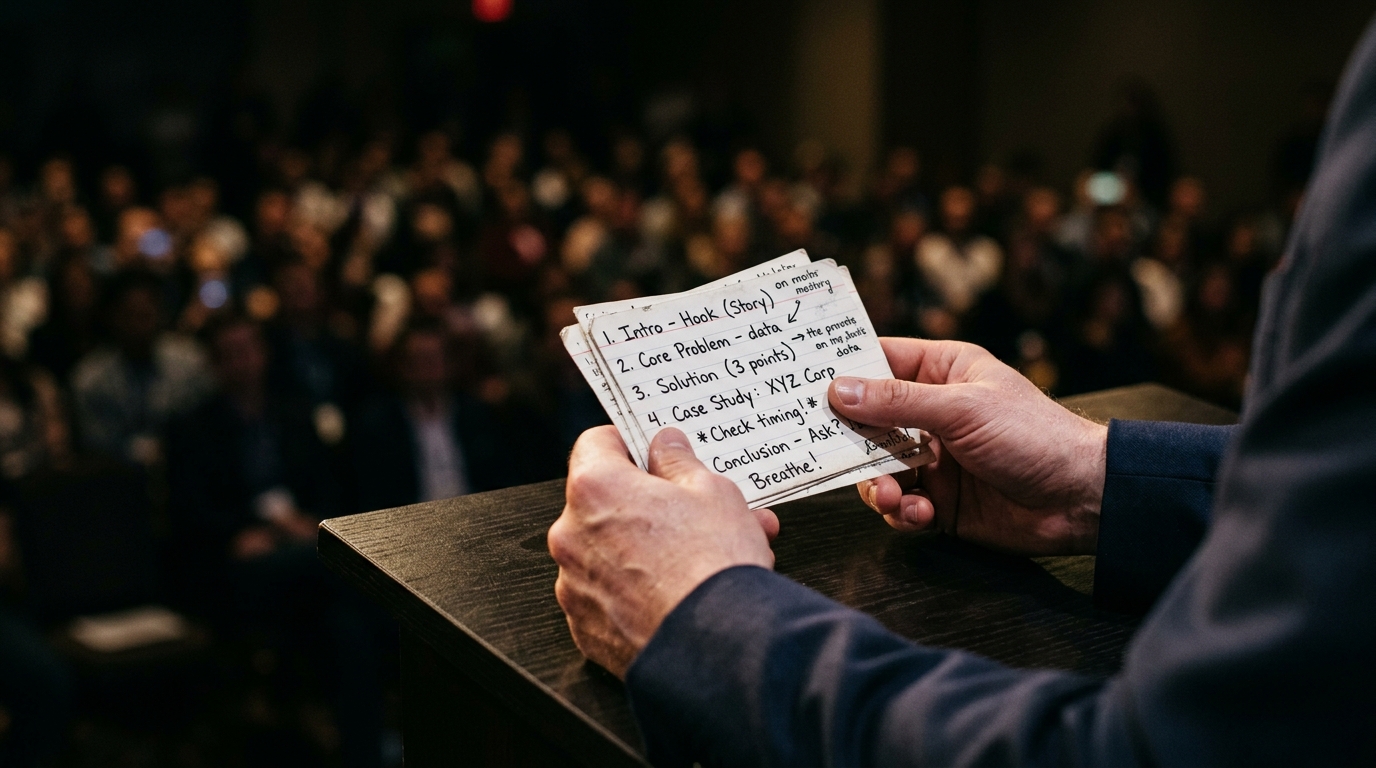 1. Intro - Hook (Story)
on
2. Core Problem - data
3. Solution (3 points) → the
on my
data
4. Case Study: XYZ Corp
*Check timing!*
Conclusion - Ask?
Breathe!